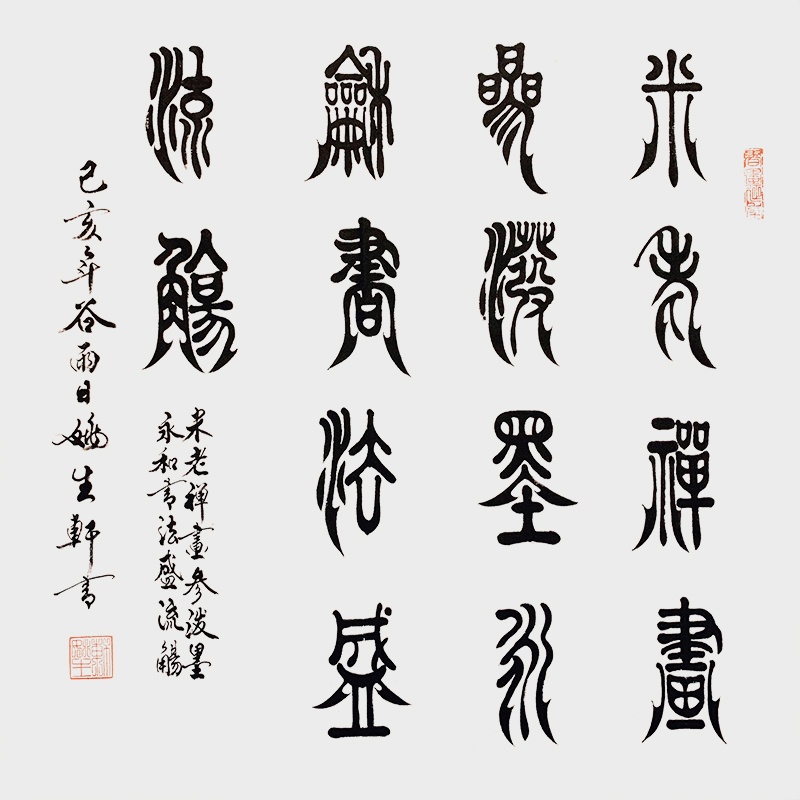 米老禪畫
曑潑墨永
龢書法盛
流觴
米老禪畫參潑墨
永和書法盛流觴
己亥年谷雨日生軒書